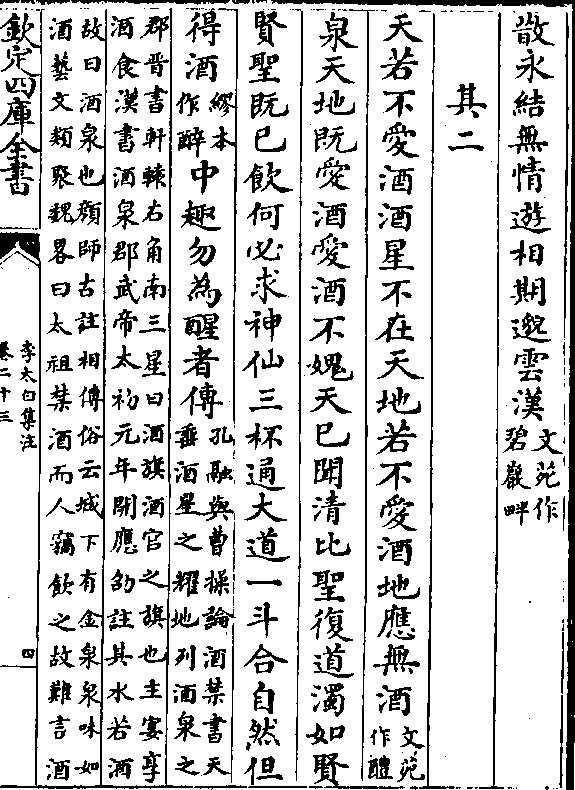 散永結無情遊相期邈雲漢文苑作碧巖畔
其二
天若不愛酒酒星不在天地若不愛酒地應無酒文苑作醴
泉天地既愛酒愛酒不媿天已聞清比聖復道濁如賢
賢聖既已飲何必求神仙三杯通大道一斗合自然但
得酒繆本作醉中趣勿為醒者傳孔融與曹操論酒禁書天
垂酒星之耀地列酒泉之
郡晉書軒轅右角南三星曰酒旗酒官之旗也主宴享
酒食漢書酒泉郡武帝太初元年開應劭註其水若酒
故曰酒泉也顔師古註相傳俗云城下有金泉泉味如
酒藝文類聚魏畧曰太祖禁酒而人竊飲之故難言酒
欽定四庫全書
李太白集注
卷二十三
四